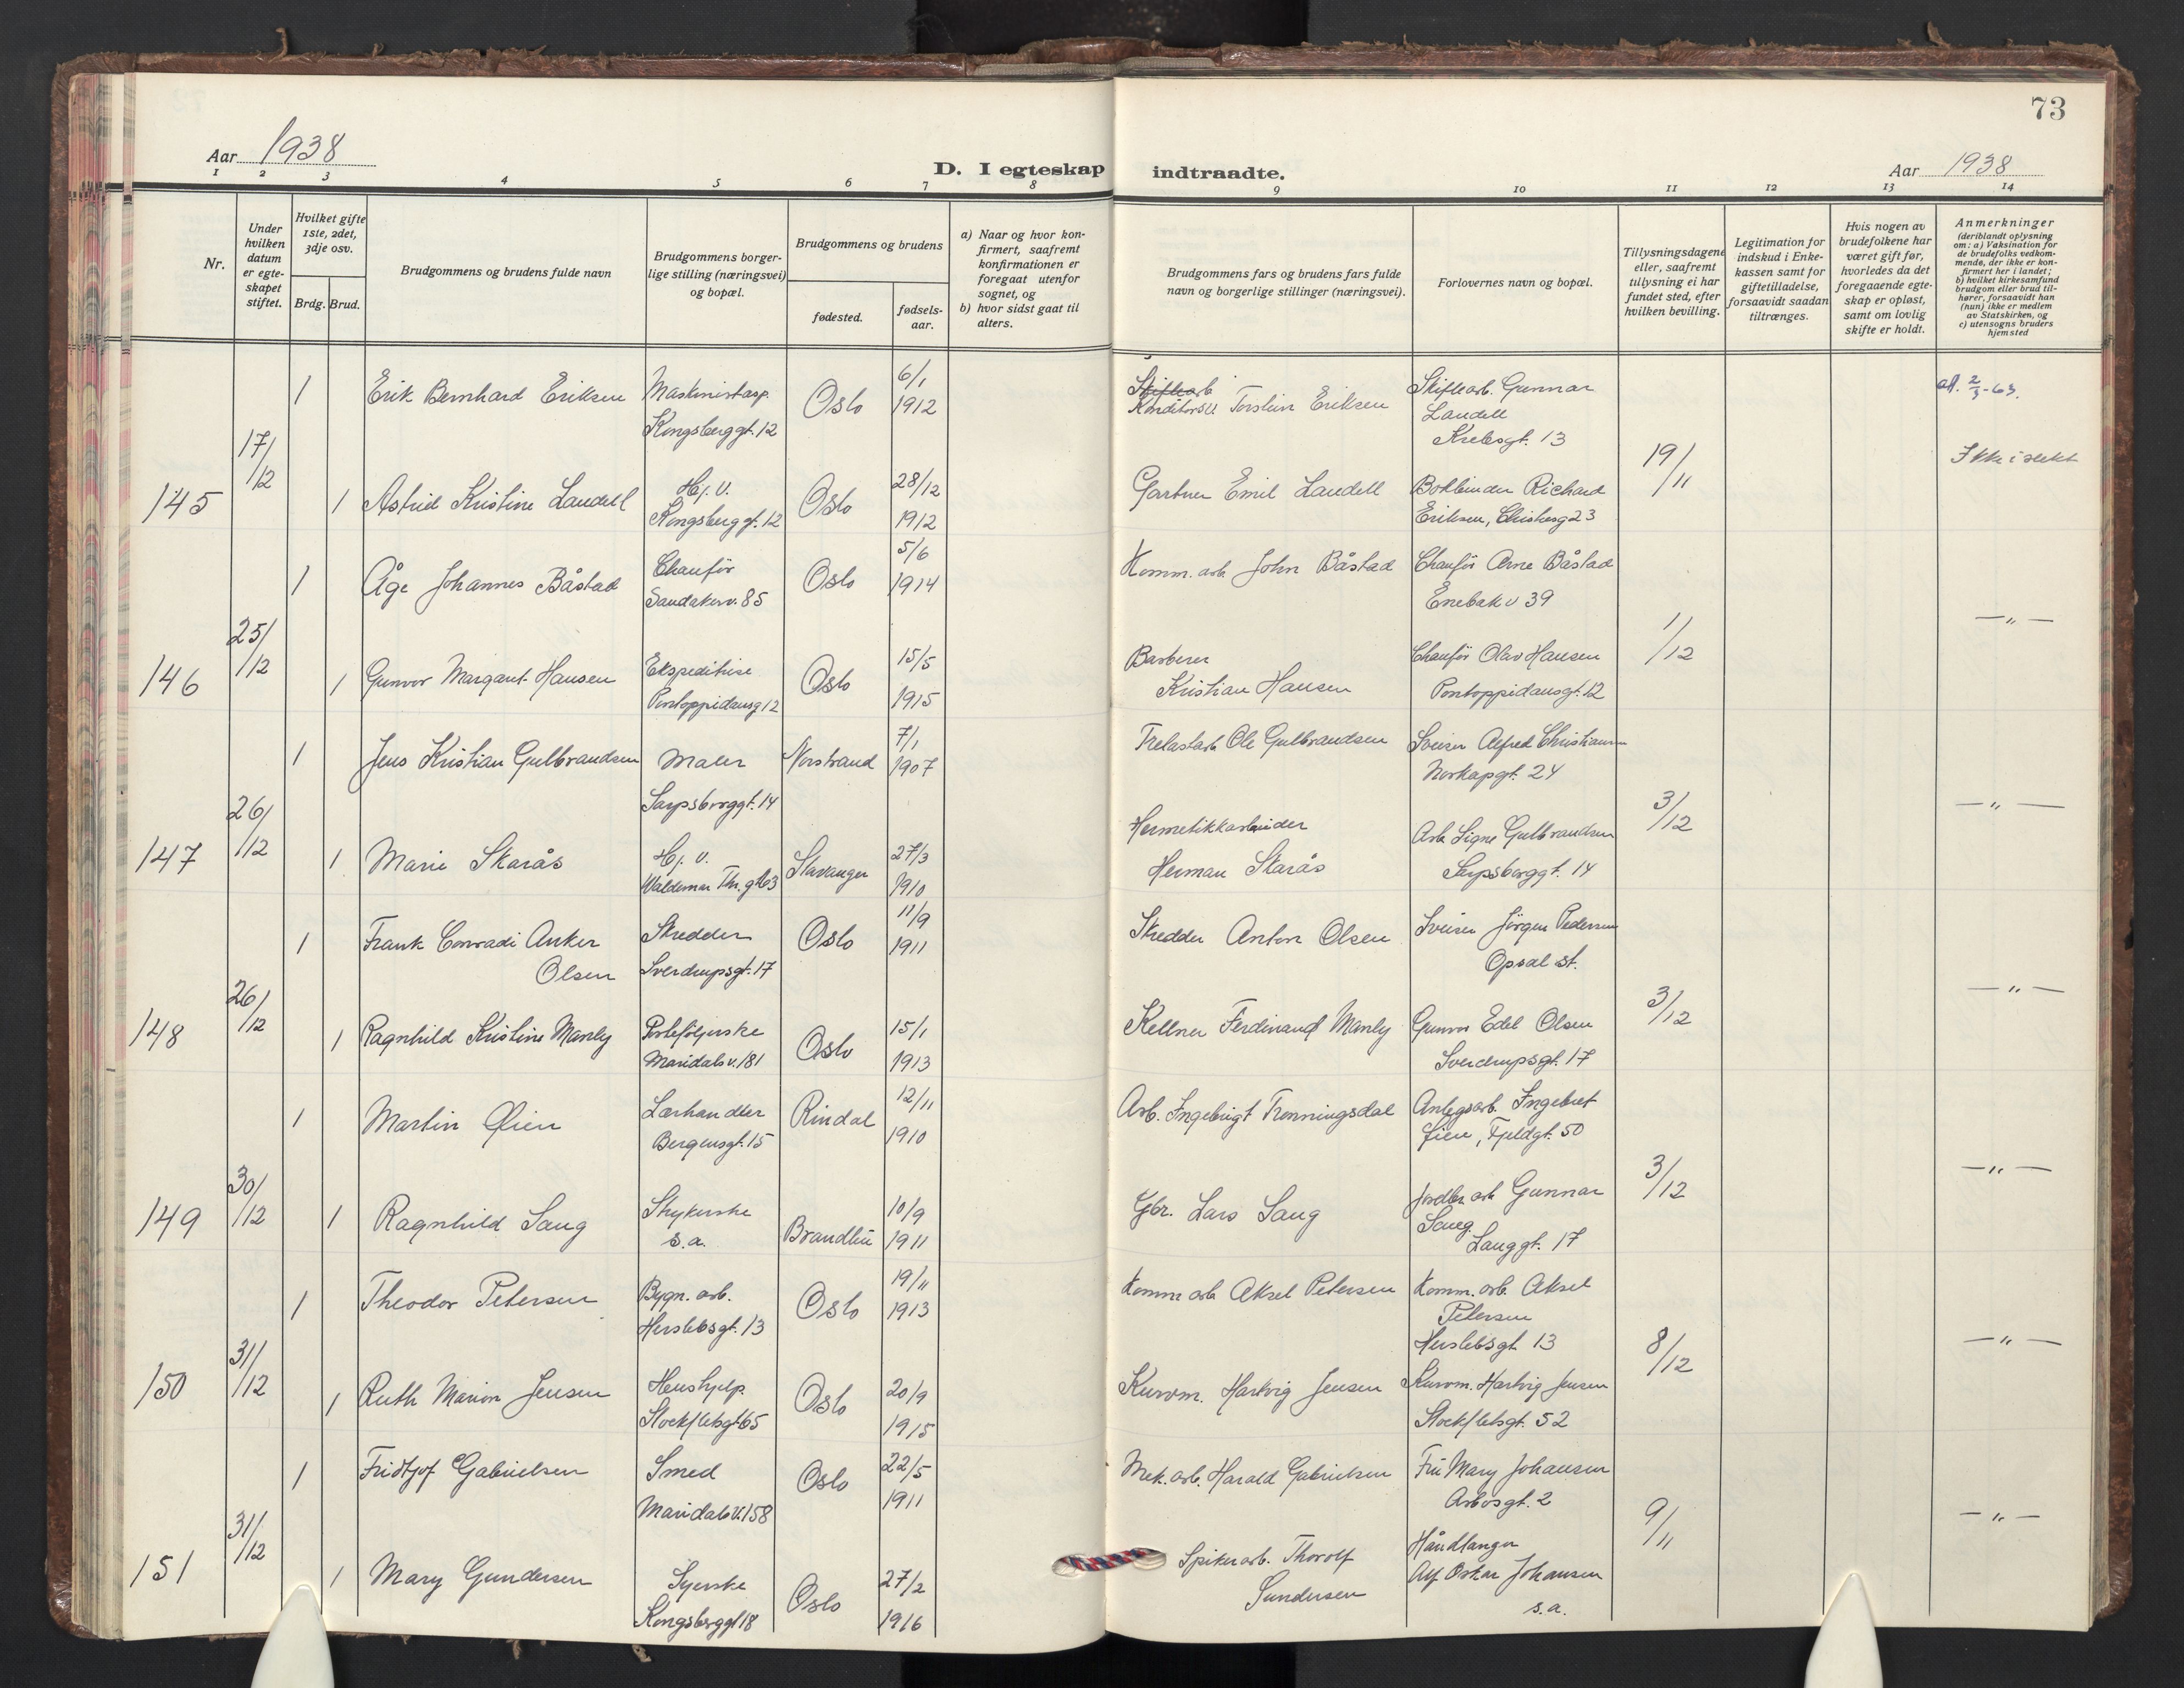 73
Aar 1938
D. I egteskap indtraadte.
Aar 1938
1 2 3 4 5 6 7 8 9 10 11 12 13 14
Nr.
Under hvilken datum er egte-skapet stiftet.
Hvilket gifte 1ste, 2det, 3dje osv.
Brdg. Brud.
Brudgommens og brudens fulde navn
Brudgommens borger-lige stilling (næringsvei) og bopæl.
Brudgommens og brudens
fødested.
fødsels-aar.
a) Naar og hvor kon-firmert, saafremt konfirmationen er foregaat utenfor sognet, og
b) hvor sidst gaat til alters.
Brudgommens fars og brudens fars fulde navn og borgerlige stillinger (næringsvei).
Forlovernes navn og bopæl.
Tillysningsdagene eller, saafremt tillysning ei har fundet sted, efter hvilken bevilling.
Legitimation for indskud i Enke-kassen samt for giftetilladelse, forsaavidt saadan tiltrænges.
Hvis nogen av brudefolkene har været gift før, hvorledes da det foregaaende egte-skap er opløst, samt om lovlig skifte er holdt.
Anmerkninger (deriblandt oplysning om: a) Vaksination for de brudefolks vedkom-mende, der ikke er kon-firmert her i landet; b) hvilket kirkesamfund brudgom eller brud til-hører, forsaavidt han (hun) ikke er medlem av Statskirken, og c) utensogns bruders hjemsted
145
17/12
1 Erik Bernhard Eriksen
Maskinistasp.
Kongsberggt. 12
Oslo
6/1
1912
Skiftearb
Konditorsv. Torstein Eriksen
Skiftearb. Gunnar
Laudell
Krebsgt. 13
19/11
att. 2/3-63.
Ikke i slekt
1 Astrid Kristine Laudell
Hj. v.
Kongsberggt. 12
Oslo
28/12
1912
Gartner Emil Laudell
Bokbinder Richard
Eriksen,
146
25/12
1 Åge Johannes Båstad
Chaufför
Sandakerv. 85
Oslo
5/6
1914
Komm. arb. John Båstad
Chaufför Arne Båstad
Enebakv 39
1/12
— " —
1 Gunvor Margaret Hansen
Ekspeditrise
Pontoppidansg 12
Oslo
15/5
1915
Barberer
Kristian Hansen
Chaufför Olav Hansen
Pontoppidansgt. 12
147
26/12
1 Jens Kristian Gulbrandsen
Maler
Sarpsborggt. 14
Norstrand
7/1
1907
Trelastarb Ole Gulbrandsen
Sveiser Alfred Christiansen
Norkapgt. 24
3/12
— " —
1 Marie Skarås
Hj. v.
Waldemar Thr. gt 63
Stavanger
27/3
1910
Hermetikkarbeider
Herman Skarås
Arb. Signe Gulbrandsen
Sarpsborggt. 14
148
26/12
1 Frank Conradi Anker
Olsen
Skredder
Sverdrupsgt. 17
Oslo
11/9
1911
Skredder Anton Olsen
Sveiser Jörgen Pedersen
Opsal st.
3/12
— " —
1 Ragnhild Kristine Manly
Porteföljerske
Maridalsv. 181
Oslo
15/1
1913
Kellner Ferdinand Manly
Gunvor Edel Olsen
Sverdrupsgt. 17
149
30/12
1 Martin Øien
Lærhandler
Bergensgt. 15
Rindal
12/11
1910
Arb. Ingebrigt Tronningsdal
Anlegsarb. Ingebret
Øien, Fjeldgt. 50
3/12
— " —
1 Ragnhild Saug
Strykerske
s.a.
Brandbu
10/9
1911
Gbr. Lars Saug
Jordbr. arb Gunnar
Saug
Langgt. 17
150
31/12
1 Theodor Petersen
Bygn. arb.
Herslebsgt. 13
Oslo
19/11
1913
Komm arb Aksel Petersen
Komm. arb. Aksel
Petersen
Herslebsgt 13
8/12
— " —
1 Ruth Marion Jensen
Henshjelp.
Stockfletsgt 65
Oslo
20/9
1915
Kurvm. Hartvig Jensen
Kurvm. Hartvig Jensen
Stockfletsgt. 52
151
31/12
1 Fridtjof Gabrielsen
Smed
Maridalsv. 158
Oslo
22/5
1911
Mek. arb. Harald Gabrielsen
Fru Mary Johansen
Arbosgt. 2
9/11
— " —
1 Mary Gundersen
Syerske
Kongsberggt 18
Oslo
27/2
1916
Spikerarb. Thorolf
Gundersen
Håndlanger
Alf Oskar Johansen
s.a.